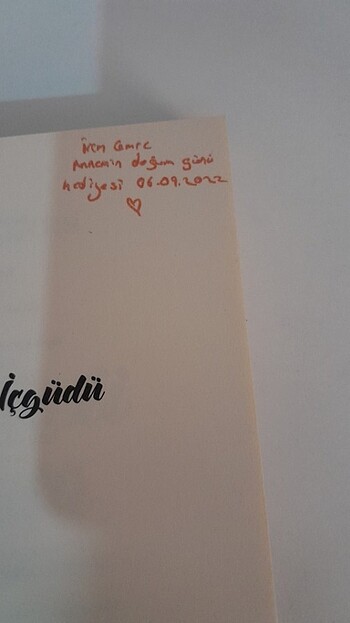 İrem Cemre
Annemin doğum günü
hediyesi 06.09.2022
İçgüdü